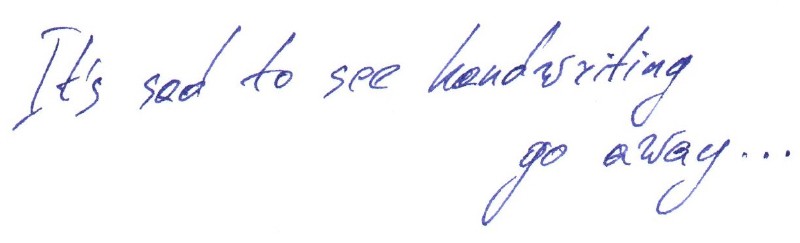 It's sad to see handwriting
go away...